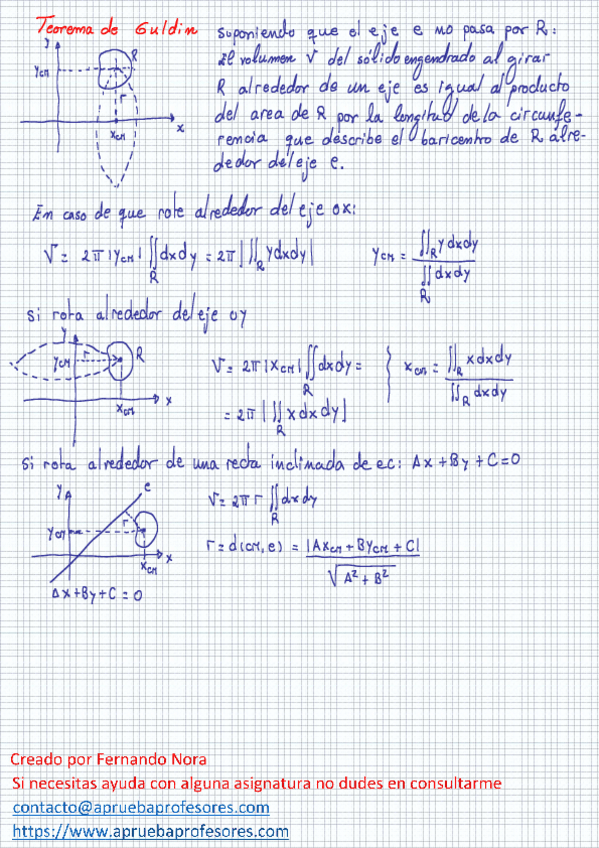 Teorema de Guldin
Suponiendo que el eje e no pasa por R:
El volumen V del sólido engendrado al girar
R alrededor de un eje es igual al producto
del area de R por la longitud de la circunfe-
rencia que describe el baricentro de R alre-
dedor del eje e.
y
R
y_CM
r
x_CM
x
En caso de que rote alrededor del eje ox:
V = 2π |y_CM| ∬_R dxdy = 2π |∬_R y dxdy|
y_CM = ∬_R y dxdy / ∬_R dxdy
Si rota alrededor del eje oy
y
y_CM
r
R
x_CM
x
V = 2π |x_CM| ∬_R dxdy =
= 2π |∬_R x dxdy|
x_CM = ∬_R x dxdy / ∬_R dxdy
Si rota alrededor de una recta inclinada de ec: Ax + By + C = 0
y
e
r
y_CM
x_CM
x
Ax + By + C = 0
V = 2π r ∬_R dxdy
r = d(CM, e) = |Ax_CM + By_CM + C| / √(A² + B²)
Creado por Fernando Nora
Si necesitas ayuda con alguna asignatura no dudes en consultarme
contacto@apruebaprofesores.com
https://www.apruebaprofesores.com